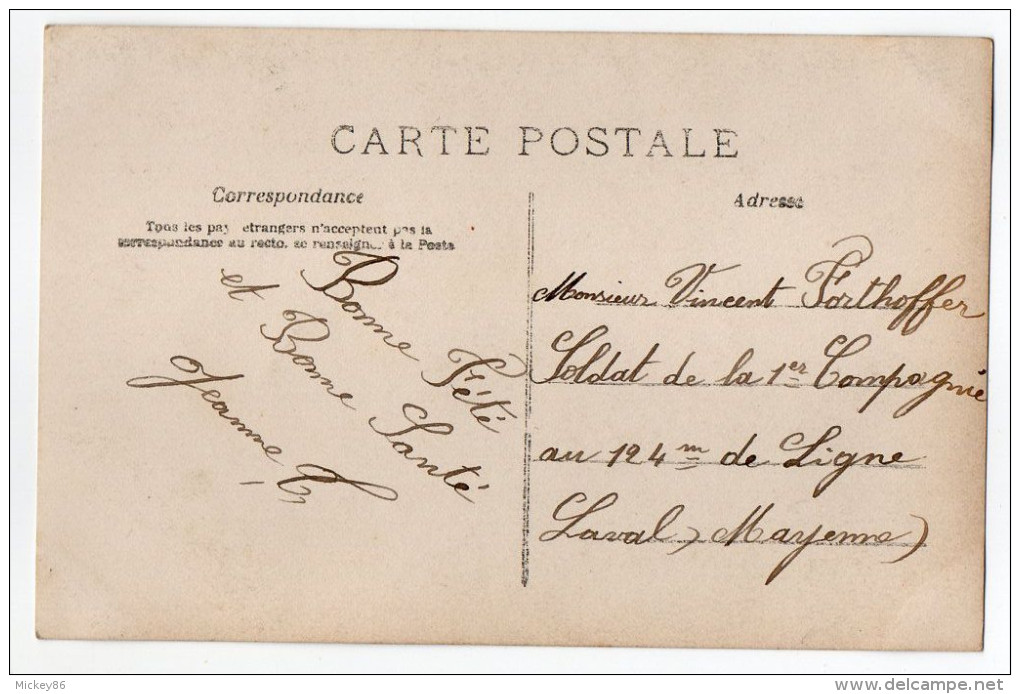 CARTE POSTALE
Correspondance
Tous les pay etrangers n'acceptent pas la
correspondance au recto. se renseigner à la Poste
Bonne Fété
et Bonne Santé
Jeanne T
Adresse
Monsieur Vincent Forthoffer
Soldat de la 1er Compagnie
au 124 m de Ligne
Laval ) Mayenne )
Mickey86
delcampe.net